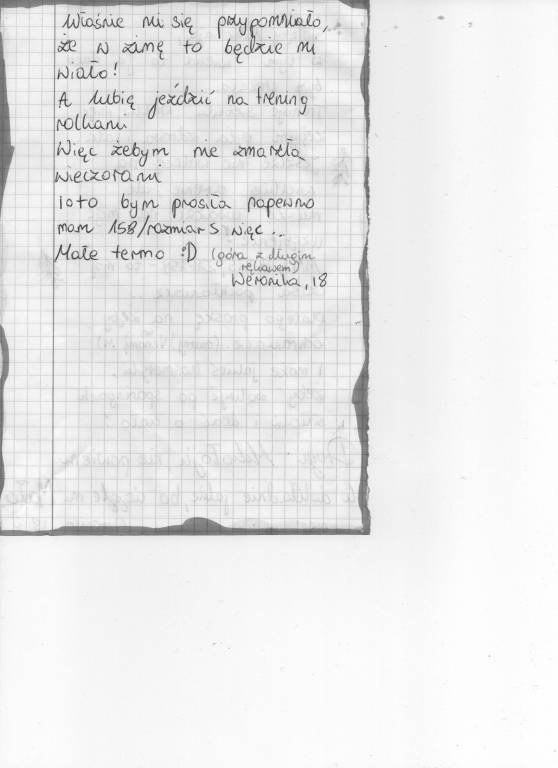 Właśnie mi się przypomniało,
że w zimę to będzie mi
wiało!
A lubię jeździć na trening
rolkami
Więc żebym nie zmarzła
wieczorami
ioto bym prosiła napewno
mam 158/rozmiar S więc...
Małe termo :D (góra z długim
rękawem)
Weronika, 18